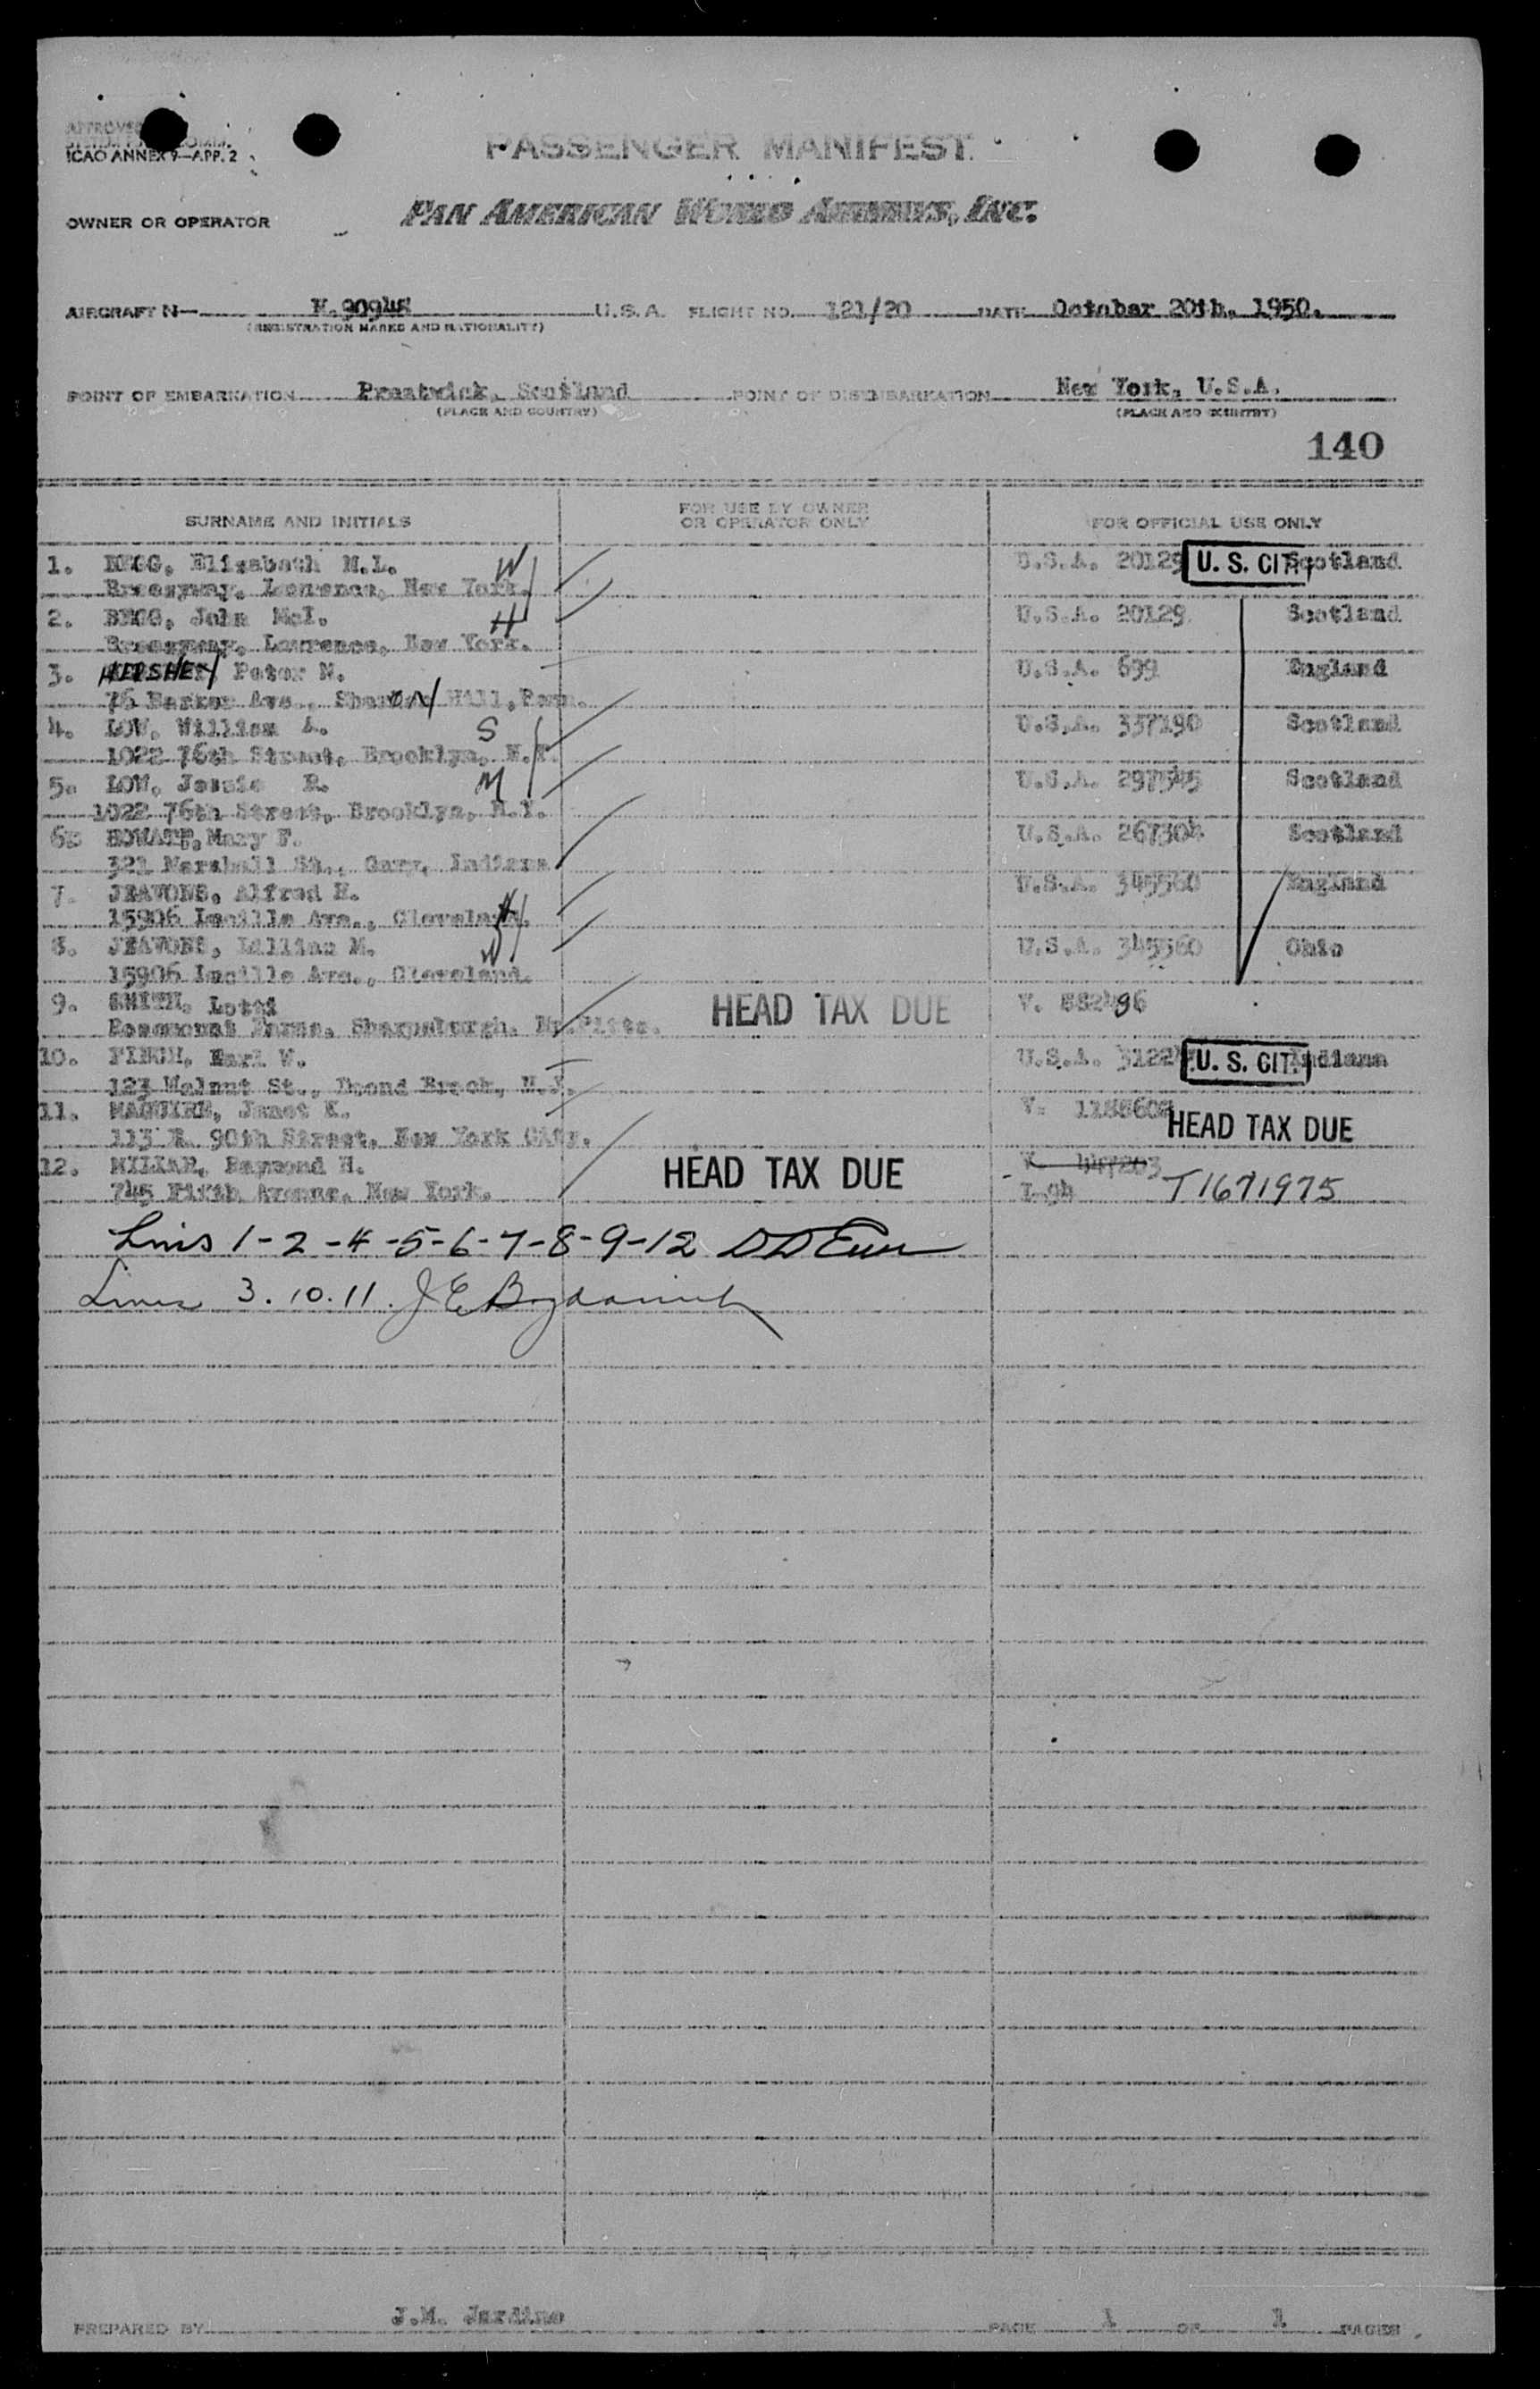 APPROVED
ICAO ANNEX 9—APP. 2
PASSENGER MANIFEST
OWNER OR OPERATOR PAN AMERICAN WORLD AIRWAYS, INC.
AIRCRAFT N— N.90948 U.S.A. FLIGHT NO. 121/20 DATE October 20th, 1950.
(REGISTRATION MARKS AND NATIONALITY)
POINT OF EMBARKATION Prestwick, Scotland POINT OF DISEMBARKATION New York, U.S.A.
(PLACE AND COUNTRY) (PLACE AND COUNTRY)
140
SURNAME AND INITIALS FOR USE BY OWNER OR OPERATOR ONLY FOR OFFICIAL USE ONLY
1. BEGG, Elizabeth M.L. W U.S.A. 20129 U. S. CIT. Scotland
Breezyway, Lawrence, New York.
2. BEGG, John McI. H U.S.A. 20129 Scotland
Breezyway, Lawrence, New York.
3. HERSHEY Peter N. U.S.A. 699 England
76 Barker Ave., Sharon Hill, Penn.
4. LOW, William A. S U.S.A. 337190 Scotland
1022 76th Street, Brooklyn, N.Y.
5. LOW, Jessie R. M U.S.A. 297545 Scotland
1022 76th Street, Brooklyn, N.Y.
6. HOWATT, Mary F. U.S.A. 267304 Scotland
321 Marshall St., Gary, Indiana
7. JEAVONS, Alfred H. H U.S.A. 345560 England
15906 Lucille Ave., Cleveland.
8. JEAVONS, Lillian M. W U.S.A. 345560 Ohio
15906 Lucille Ave., Cleveland.
9. SMITH, Lotti HEAD TAX DUE V. 882486
Rosemount Farms, Sharpsburgh, Nr. Pitts.
10. FINCH, Earl W. U.S.A. 3122 U. S. CIT. Indiana
123 Walnut St., Bound Brook, N.J.
11. MAGUIRE, Janet K. V. 118860 HEAD TAX DUE
113 E. 90th Street, New York City.
12. MILLAR, Raymond H. HEAD TAX DUE V.
745 Fifth Avenue, New York. I-94 T1671975
Lines 1-2-4-5-6-7-8-9-12
Lines 3. 10. 11. J E
PREPARED BY J.M. Jardine PAGE 1 OF 1 PAGES